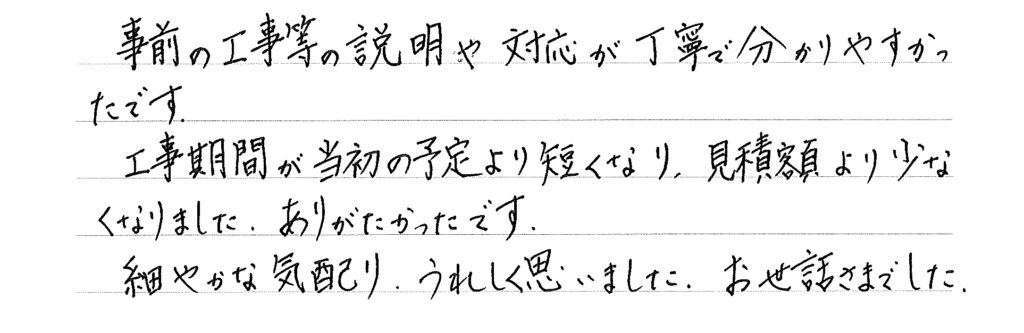 事前の工事等の説明や対応が丁寧で分かりやすかっ
たです.
工事期間が当初の予定より短くなり、見積額より少な
くなりました. ありがたかったです.
細やかな気配り. うれしく思いました. お世話さまでした.